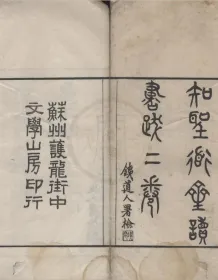 知聖道齋讀
書跋二卷
鏡道人署檢
蘇州護龍街中
文學山房印行